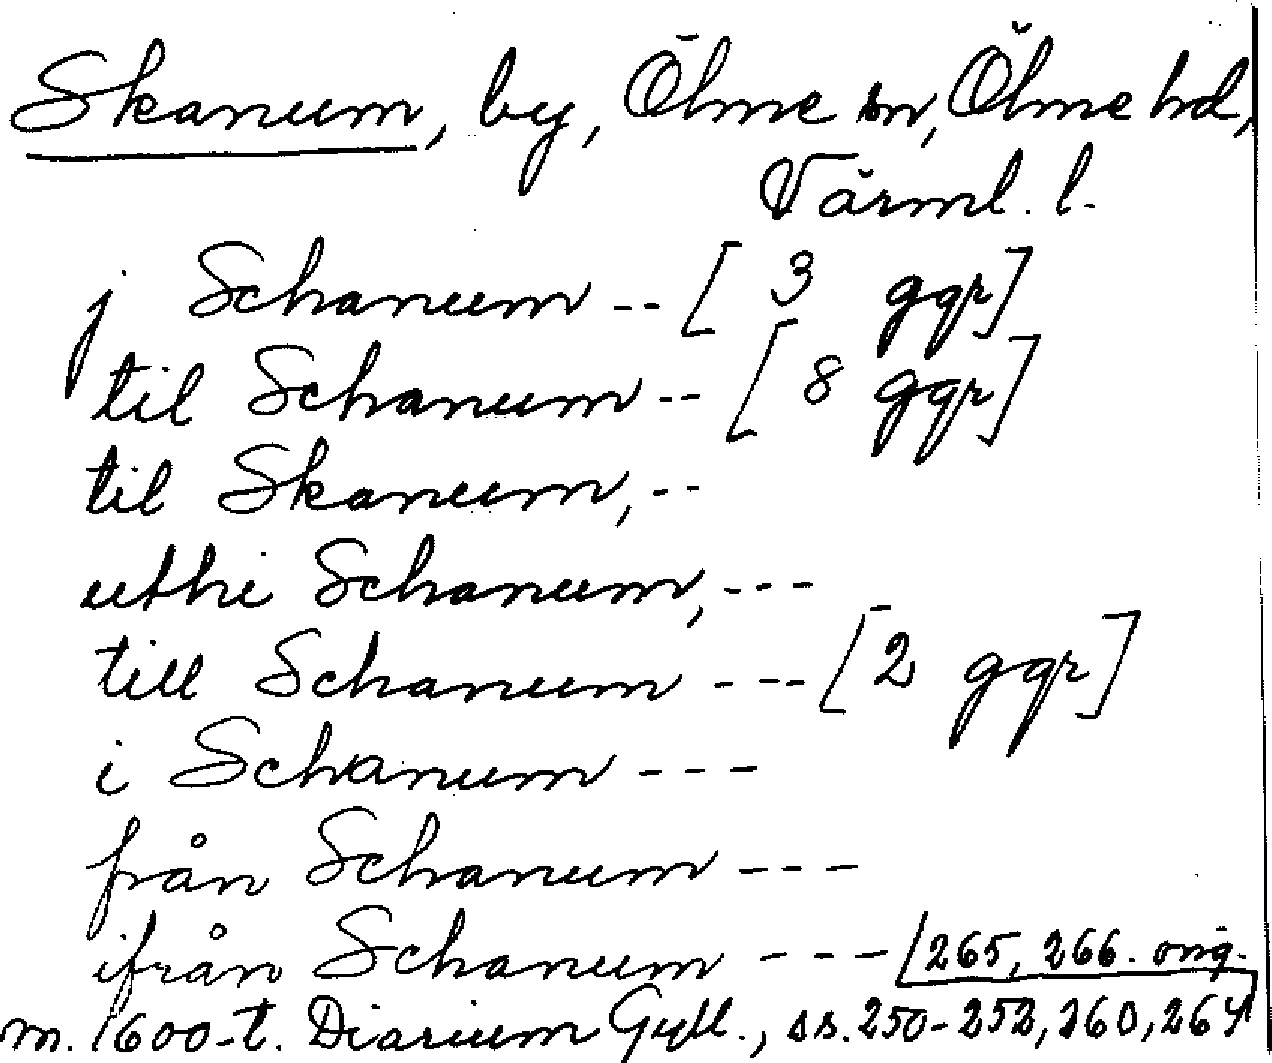 Skanum, by, Ölme sn, Ölme hd,
Värml. l.
j Schanum -- [3 ggr]
til Schanum -- [8 ggr]
til Skanum, --
uthi Schanum, ---
till Schanum --- [2 ggr]
i Schanum ---
från Schanum ---
ifrån Schanum --- 265, 266. orig.
m. 1600-t. Diarium Gyll., ss. 250-252, 260, 264